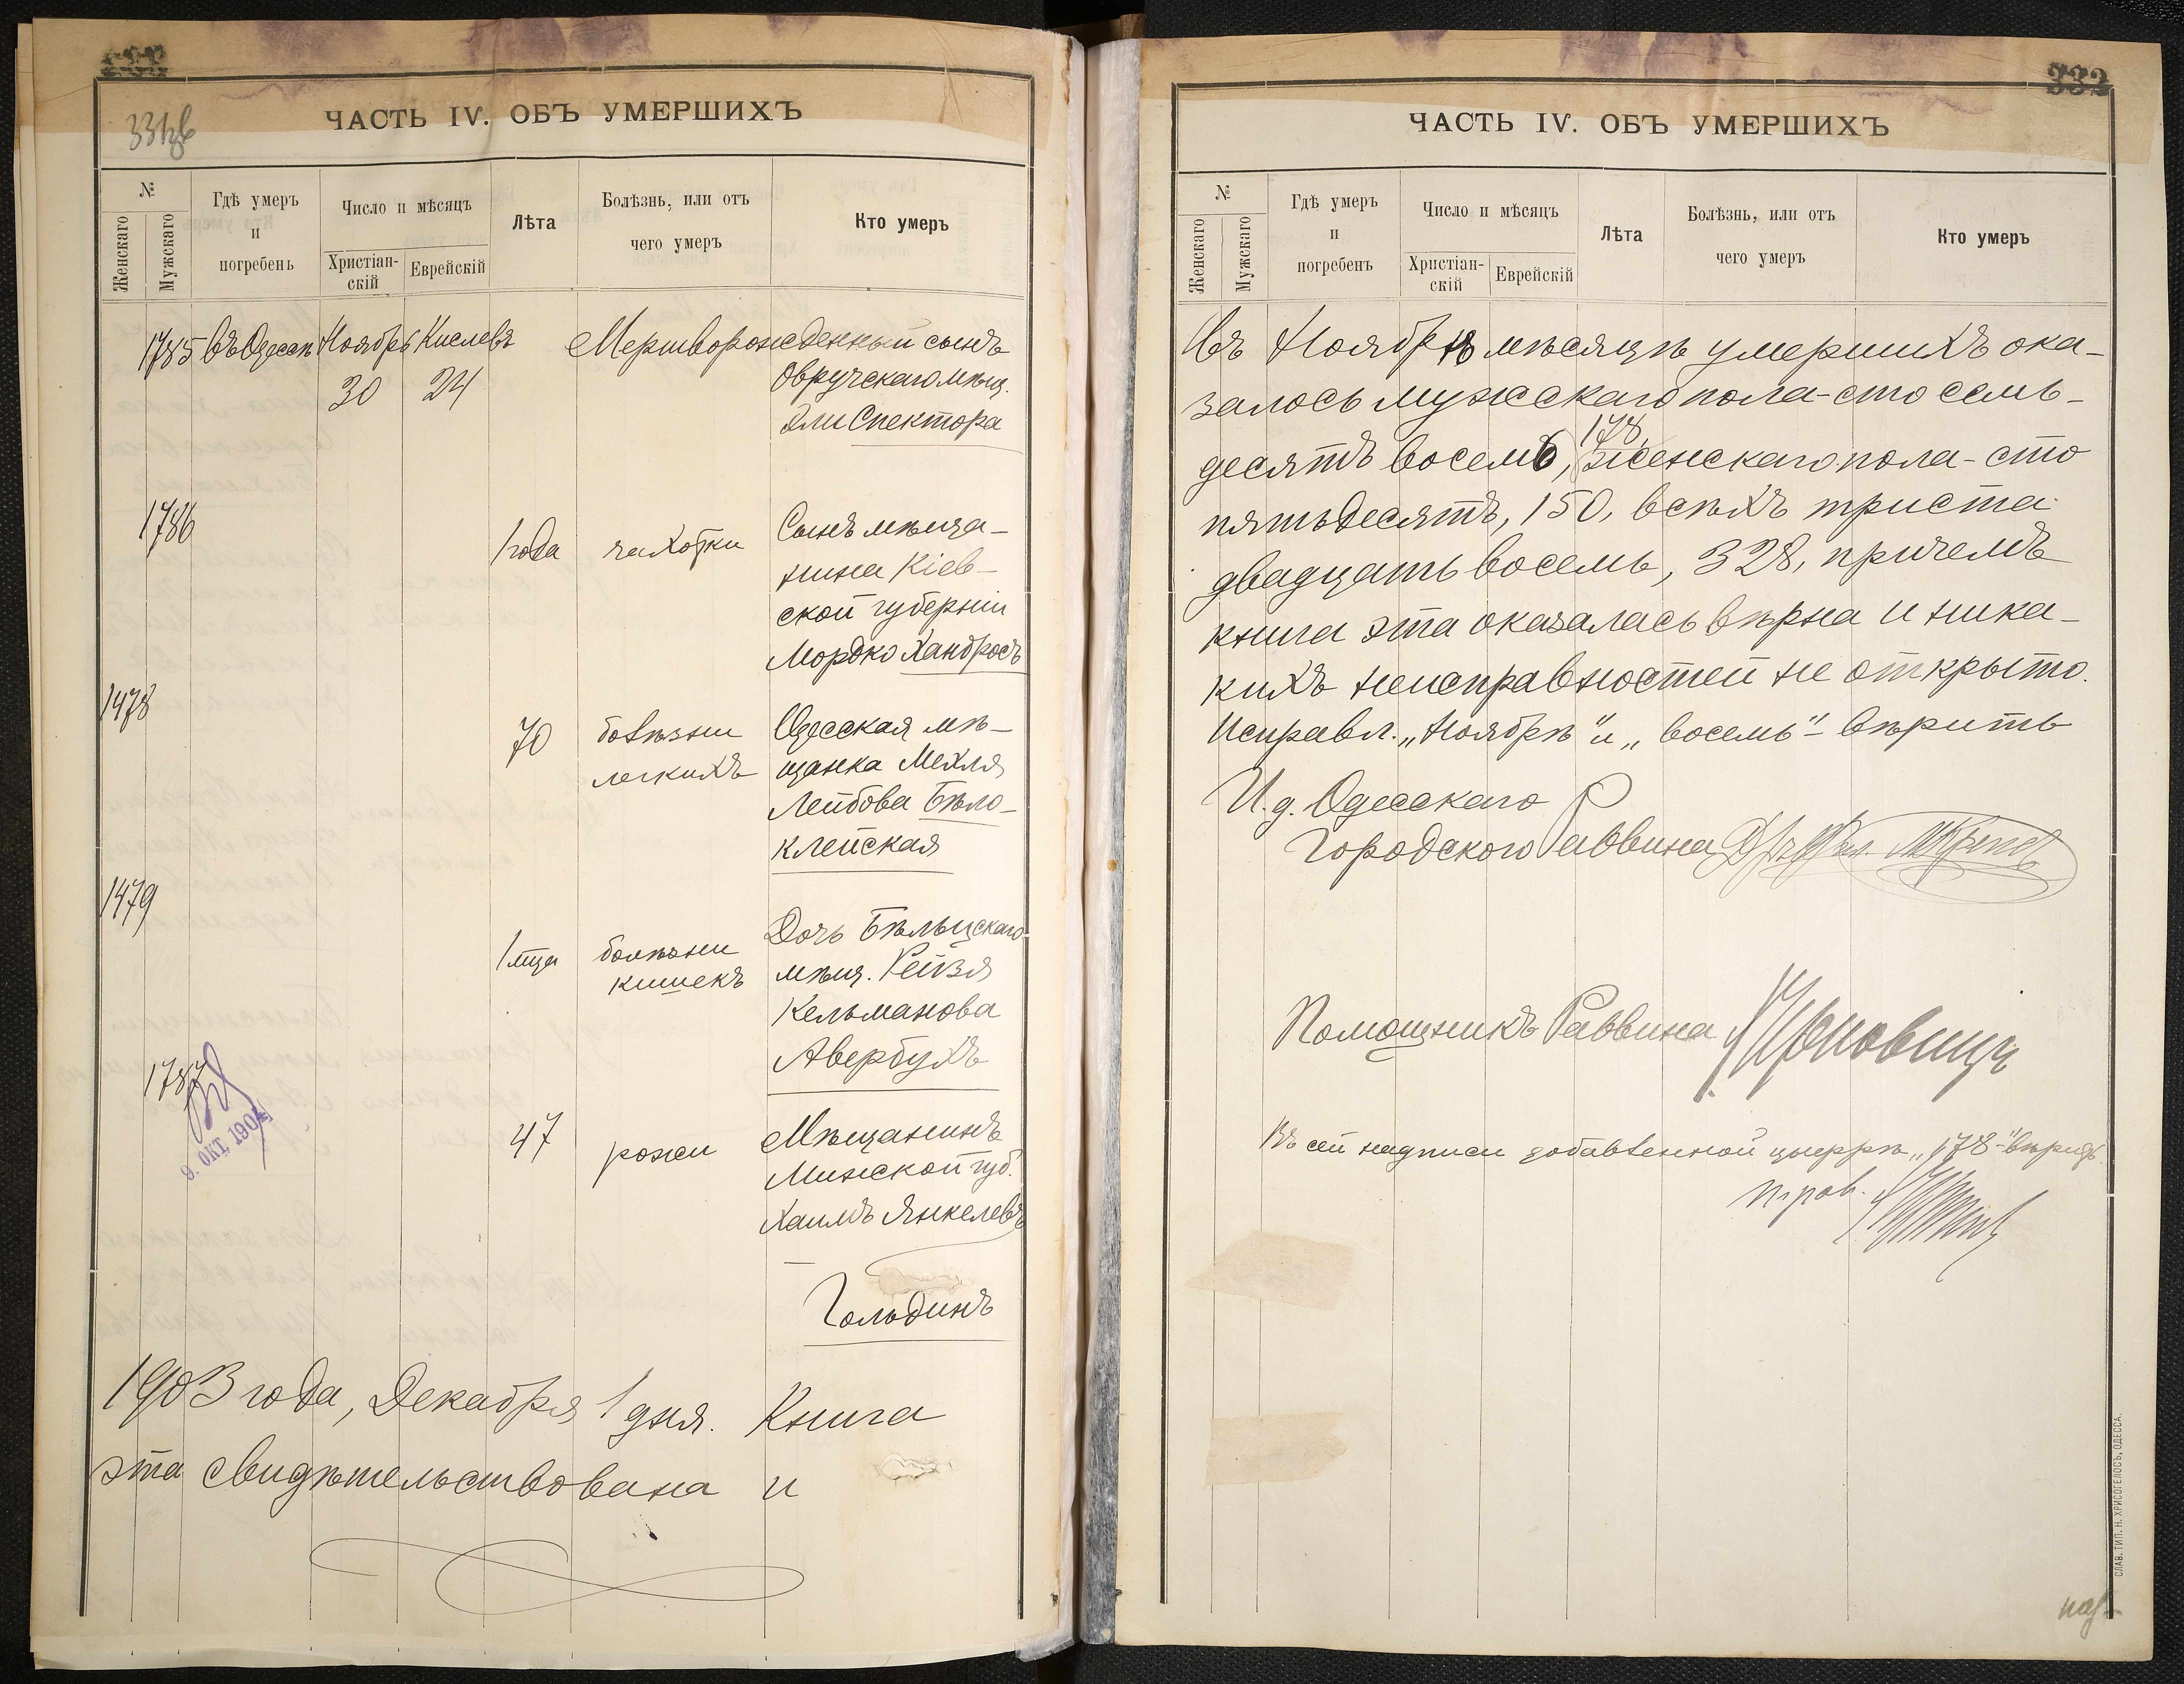 331об
ЧАСТЬ IV. ОБЪ УМЕРШИХЪ
№
Женскаго
Мужскаго
Гдѣ умеръ
и
погребенъ
Число и мѣсяцъ
Христіан-
скій
Еврейскій
Лѣта
Болѣзнь, или отъ
чего умеръ
Кто умеръ
1785 Въ Одессѣ Ноябрь Кислевъ Мертворожденный сынъ
30 24 Овручскаго мѣщ.
Эли Спектора
1786
1 года чахотки Сынъ мѣща-
нина Кіев-
ской губерніи
Мордко Хандросъ
1478
70 болѣзни Одесская мѣ-
легкихъ щанка Мехля
Лейбова Бѣло-
клейская
1479
1 мца болѣзни Дочь Бѣльцскаго
кишекъ мѣщ. Рейзя
Кельманова
Авербухъ
1787
9. ОКТ. 1904
47 рожи Мѣщанинъ
Минской губ.
Хаимъ Янкелевъ
Гольдинъ
1903 года, Декабря 1 дня. Книга
эта свидѣтельствована и
332
ЧАСТЬ IV. ОБЪ УМЕРШИХЪ
№
Женскаго
Мужскаго
Гдѣ умеръ
и
погребенъ
Число и мѣсяцъ
Христіан-
скій
Еврейскій
Лѣта
Болѣзнь, или отъ
чего умеръ
Кто умеръ
въ Ноябрѣ мѣсяцѣ умершихъ ока-
залось мужскаго пола - сто семь-
десятъ восемь, 178, женскаго пола - сто
пятьдесятъ, 150, всѣхъ триста
двадцать восемь, 328, причемъ
книга эта оказалась вѣрна и ника-
кихъ неисправностей не открыто.
Исправл. „Ноябрѣ" и „восемь" - вѣрить
И. д. Одесскаго
Городского Раввина
Помощникъ Раввина
Въ сей надписи добавленной цыфрѣ „178" - вѣрить
СЛАВ. ТИП. Н. ХРИСОГЕЛОСЪ, ОДЕССА.